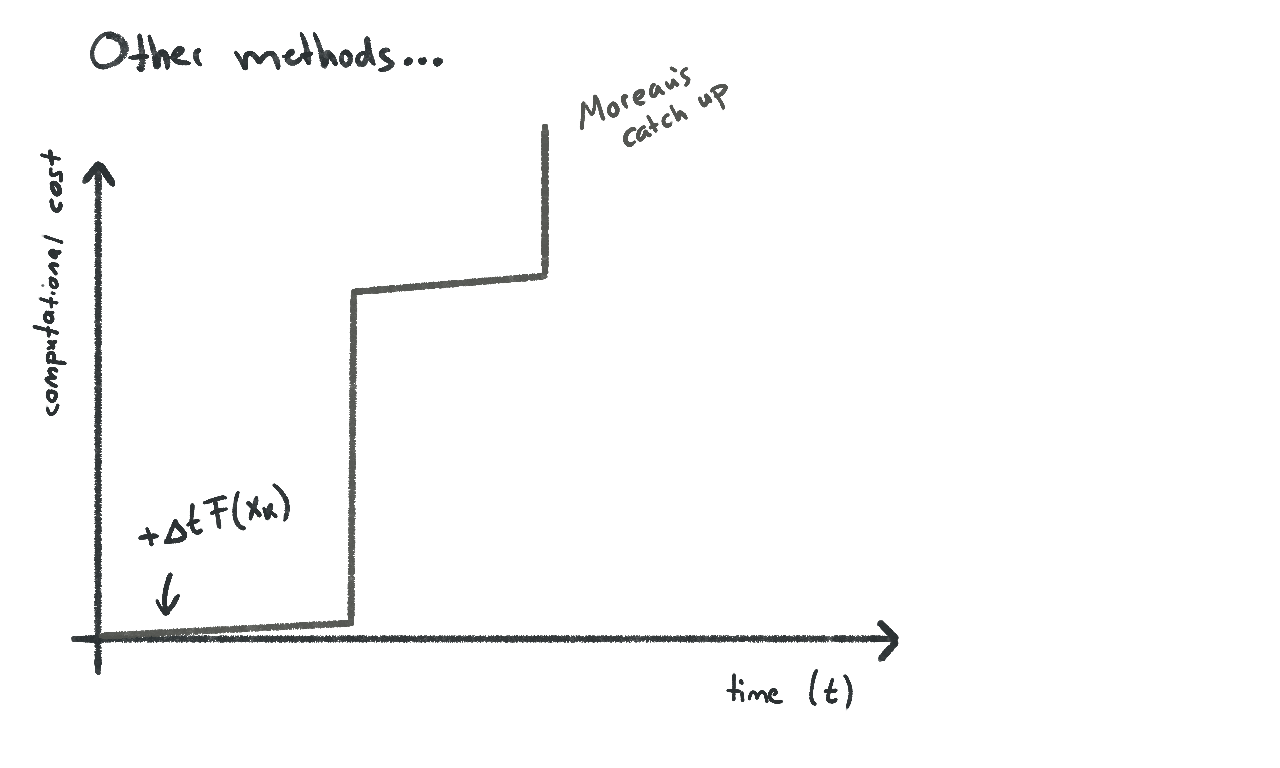 Other methods...
Moreau's
catch up
computational cost
+ΔtF(xₖ)
time (t)